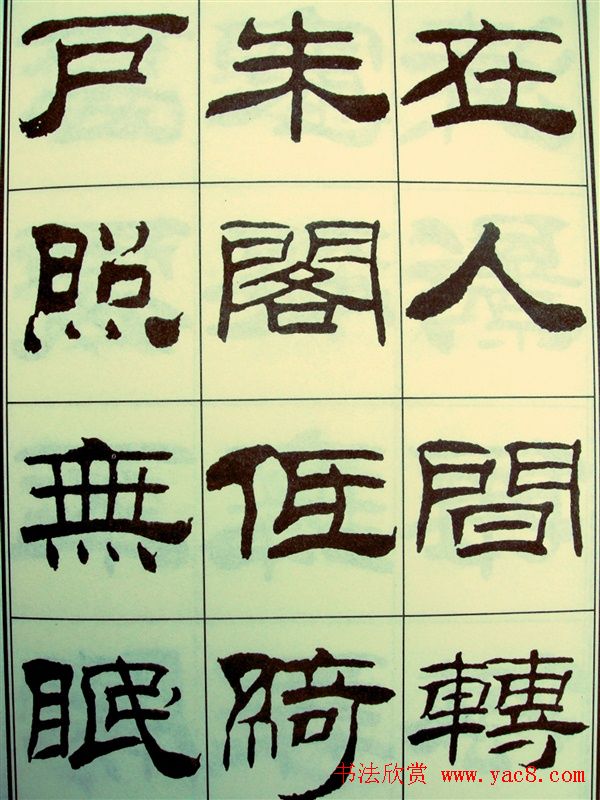 在人間轉
朱閣低綺
戶照無眠
书法欣赏 www.yac8.com